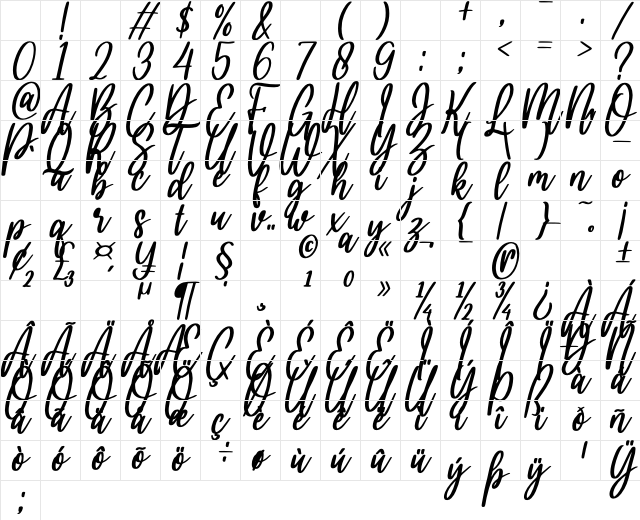 ! # $ % & ( ) + , - . /
0 1 2 3 4 5 6 7 8 9 : ; < = > ?
@ A B C D E F G H I J K L M N O
P Q R S T U V W X Y Z [ \ ] _
a b c d e f g h i j k l m n o
p q r s t u v w x y z { | } ~ ¡
¢ £ ¤ ¥ ¦ § ¨ © ª « ¬ ® ¯ ° ±
² ³ ´ µ ¶ · ¸ ¹ º » ¼ ½ ¾ ¿ À Á
Â Ã Ä Å Æ Ç È É Ê Ë Ì Í Î Ï Ð Ñ
Ò Ó Ô Õ Ö × Ø Ù Ú Û Ü Ý Þ ß à á
â ã ä å æ ç è é ê ë ì í î ï ð ñ
ò ó ô õ ö ÷ ø ù ú û ü ý þ ÿ ' Ÿ
;